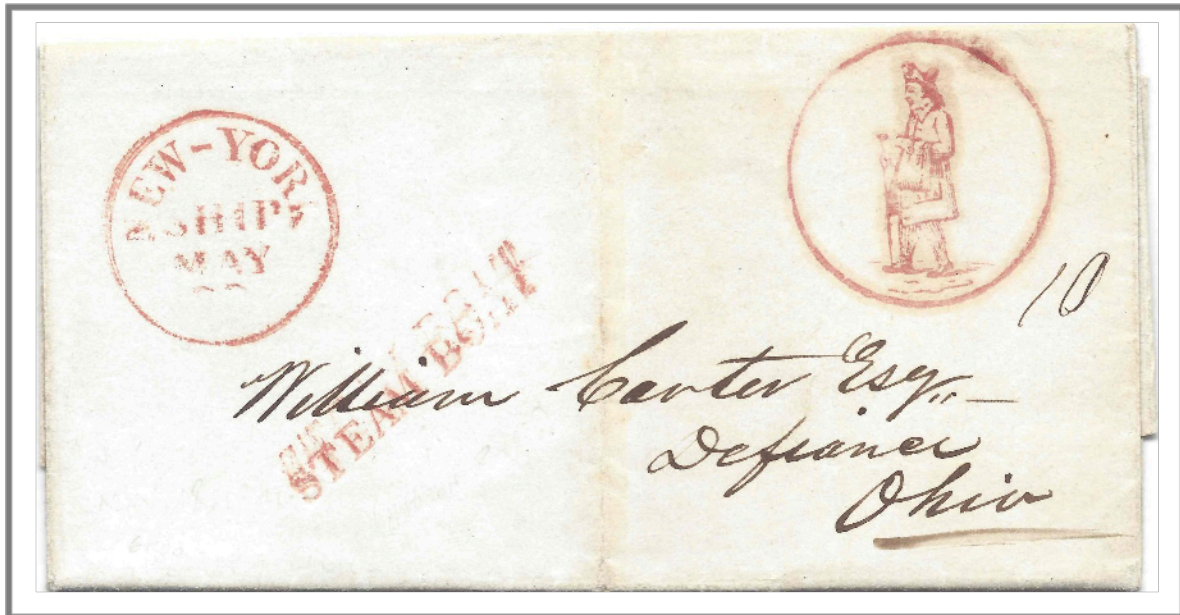 NEW-YORK
SHIP
MAY
STEAM BOAT
10
William Carter Esq.
Defiance
Ohio